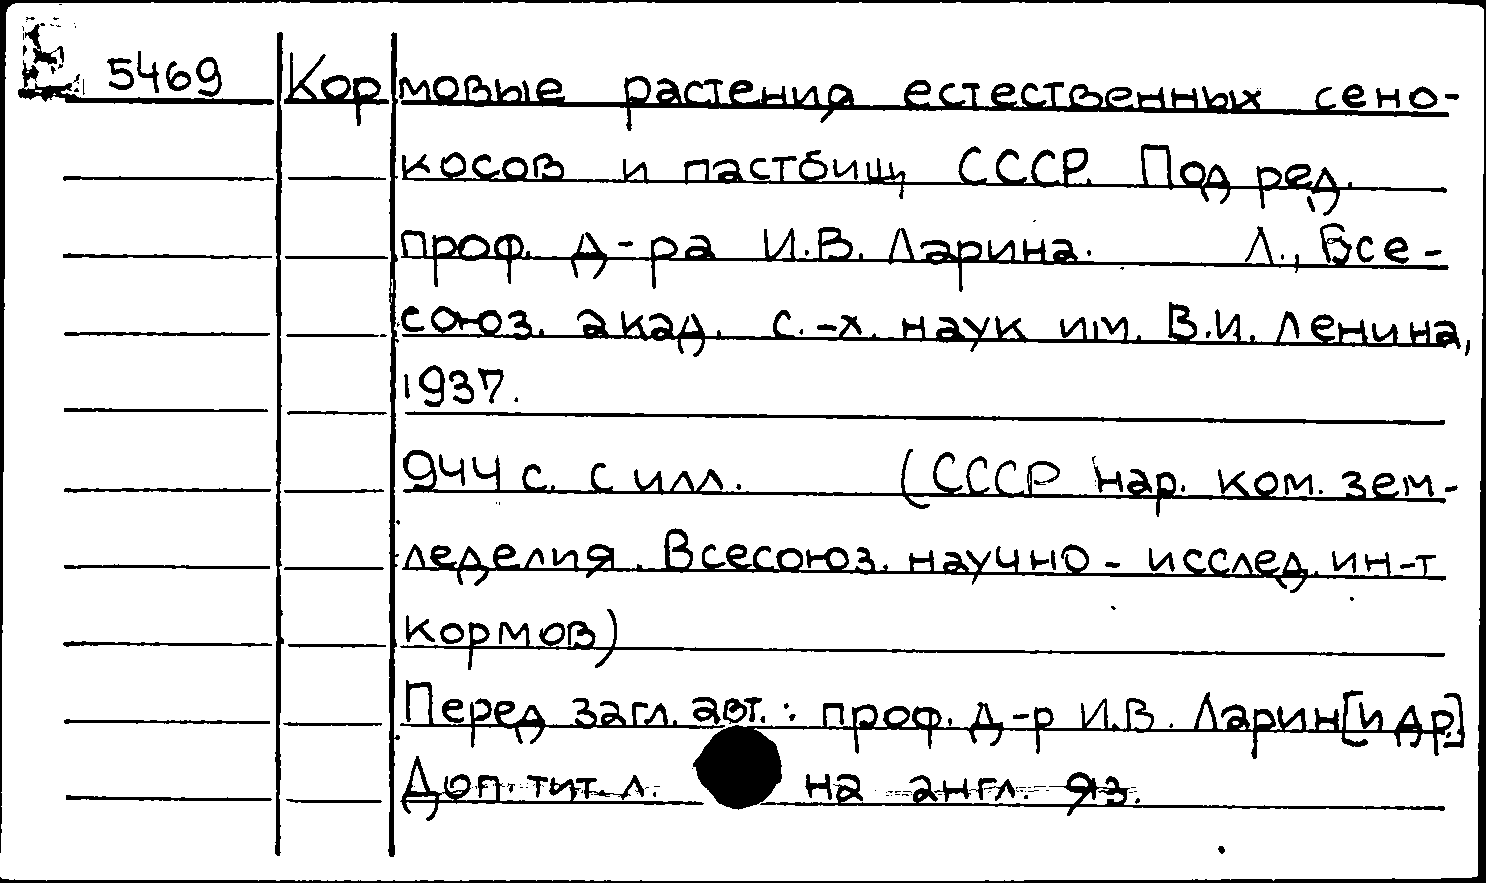 Е 5469 Кормовые растения естественных сено-
косов и пастбищ СССР. Под ред.
проф. д-ра И.В. Ларина. Л., Все-
союз. акад. с.-х. наук им. В.И. Ленина,
1937.
944 с. с илл. (СССР Нар. ком. зем-
леделия. Всесоюз. научно-исслед. ин-т
кормов)
Перед загл. авт.: проф. д-р И.В. Ларин [и др.]
Доп. тит. л. на англ. яз.